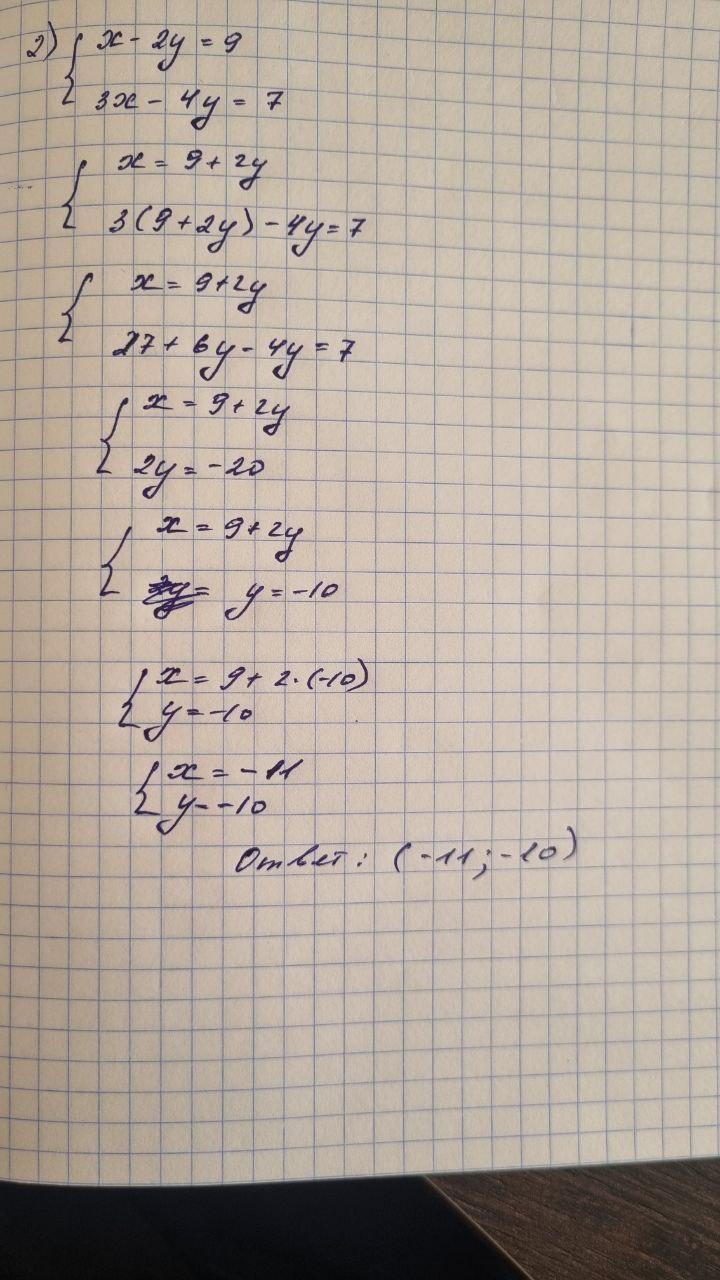 2) { x - 2y = 9
3x - 4y = 7
{ x = 9 + 2y
3(9 + 2y) - 4y = 7
{ x = 9 + 2y
27 + 6y - 4y = 7
{ x = 9 + 2y
2y = -20
{ x = 9 + 2y
y = -10
{ x = 9 + 2 · (-10)
y = -10
{ x = -11
y = -10
Ответ: (-11; -10)